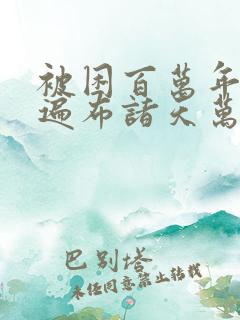 被困百萬年
遍布諸天萬
巴別塔
未經同意禁止轉載